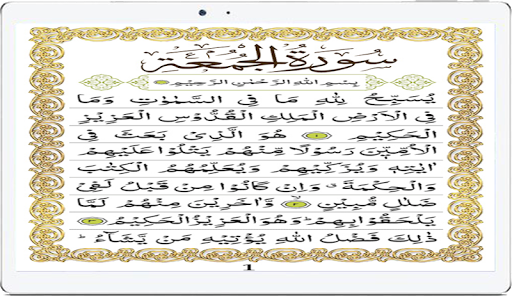 سُورَةُ الْجُمُعَة
بِسْمِ اللّٰهِ الرَّحْمٰنِ الرَّحِيْمِ
يُسَبِّحُ لِلّٰهِ مَا فِى السَّمٰوٰتِ وَمَا
فِى الْاَرْضِ الْمَلِكِ الْقُدُّوْسِ الْعَزِيْزِ
الْحَكِيْمِ ۝۱ هُوَ الَّذِىْ بَعَثَ فِى
الْاُمِّيّٖنَ رَسُوْلًا مِّنْهُمْ يَتْلُوْا عَلَيْهِمْ
اٰيٰتِهٖ وَيُزَكِّيْهِمْ وَيُعَلِّمُهُمُ الْكِتٰبَ
وَالْحِكْمَةَ ۗ وَاِنْ كَانُوْا مِنْ قَبْلُ لَفِىْ
ضَلٰلٍ مُّبِيْنٍ ۝۲ وَّاٰخَرِيْنَ مِنْهُمْ لَمَّا
يَلْحَقُوْا بِهِمْ ۗ وَهُوَ الْعَزِيْزُ الْحَكِيْمُ ۝۳
ذٰلِكَ فَضْلُ اللّٰهِ يُؤْتِيْهِ مَنْ يَّشَآءُ ۗ
1